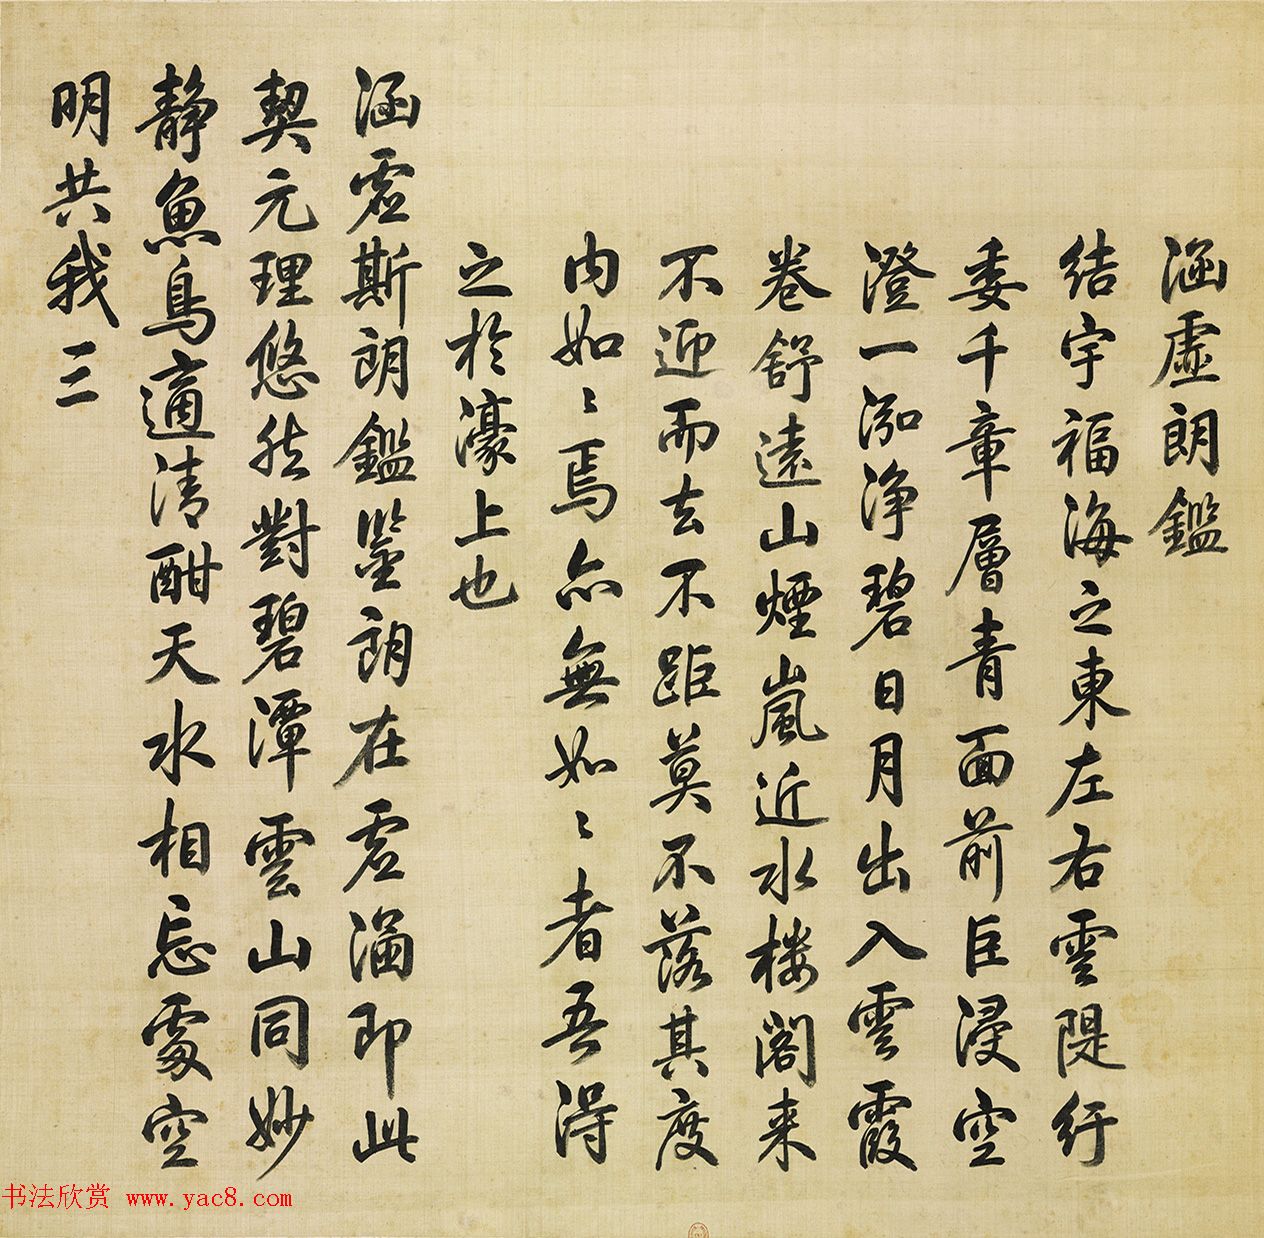 涵虛朗鑑
結宇福海之東左右雲隄行
委千章層青面前巨浸空
澄一泓淨碧日月出入雲霞
卷舒遠山煙嵐近水楼閣来
不迎而去不距莫不落其度
内如〻焉亦無如〻者吾得
之於濠上也
涵虛斯朗鑑鑒朗在虛涵即此
契元理悠然對碧潭雲山同妙
靜魚鳥適清酣天水相忘處空
明共我三
书法欣赏 www.yac8.com